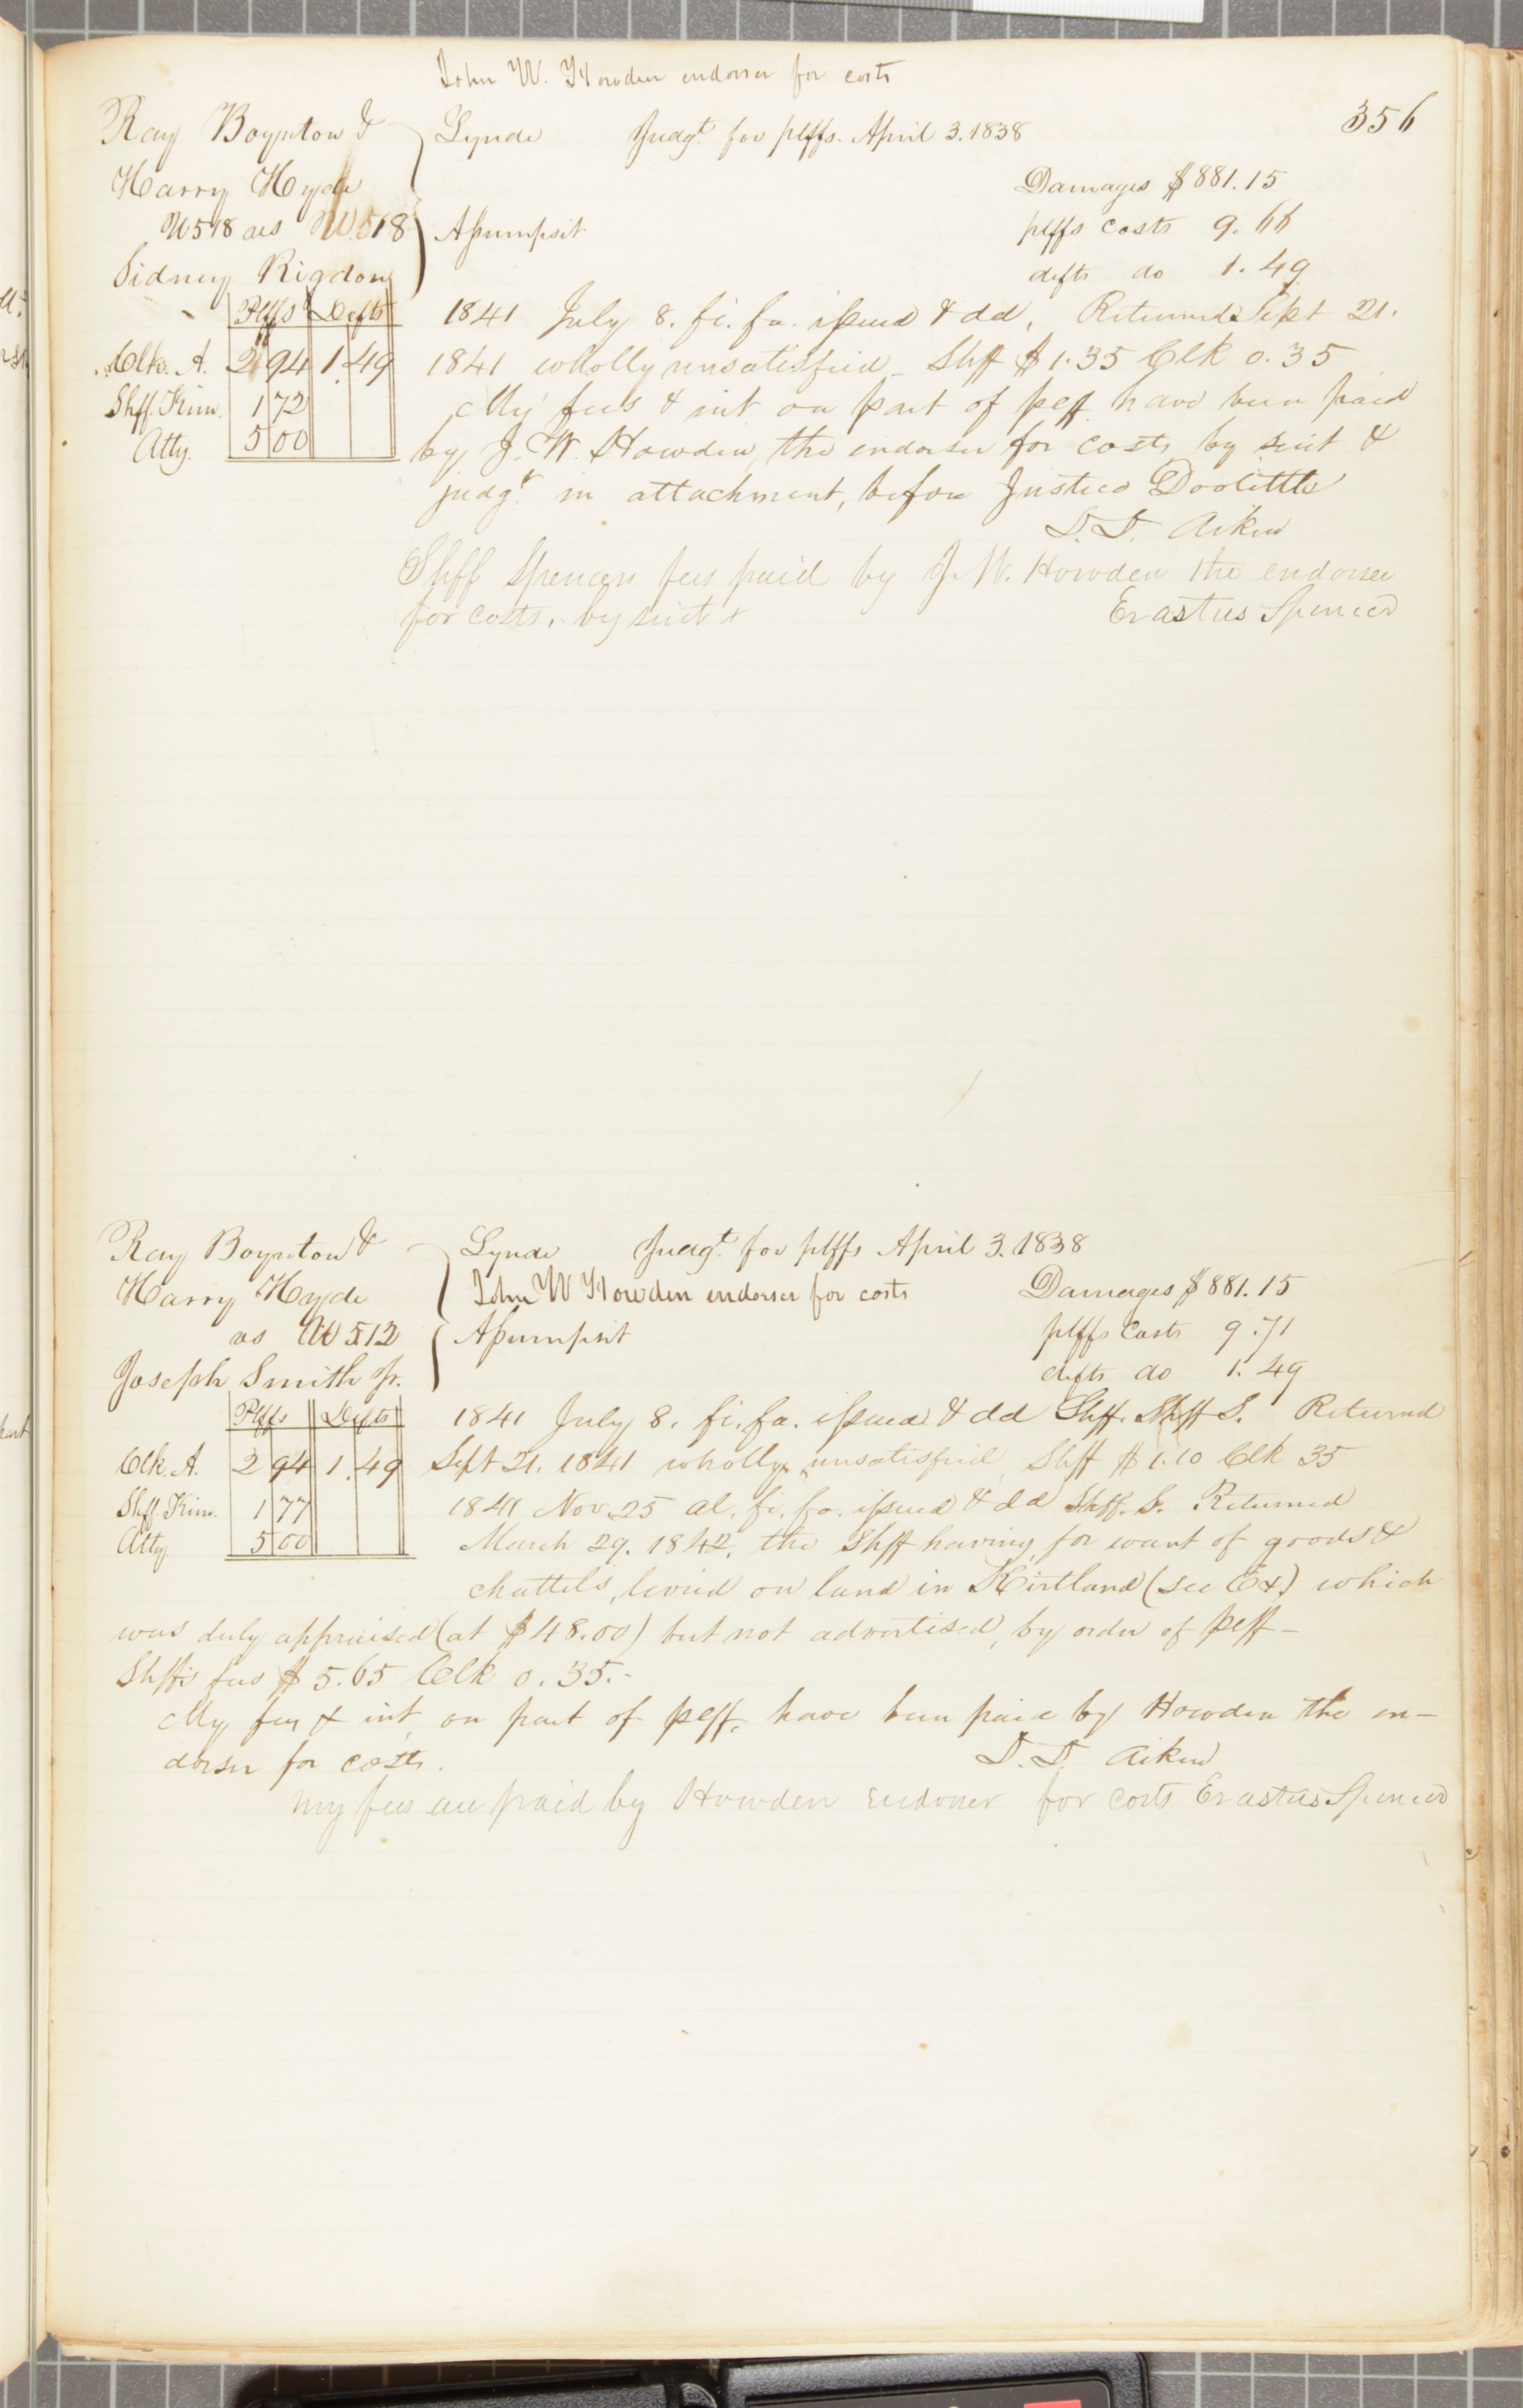 John W. Howden endorser for costs
356
Ray Boynton &
Harry Hyde
W 518 vs W. 518
Sidney Rigdon
Lynde Judgt. for plffs. April 3. 1838
Damages $881.15
Assumpsit plffs costs 9.66
defts do 1.49
Plffs Defts
Clk. A. 2 94 1.49
Shff. Kim. 1 72
Atty. 5 00
1841 July 8. fi. fa. issued & dd. Returned Sept 21.
1841 wholly unsatisfied - Shff $1.35 Clk 0.35
My fees & int on part of peff have been paid
by J. W. Howden, the endorser for costs, by suit &
judgt. in attachment, before Justice Doolittle
D. D. Aiken
Shff Spencers fees paid by J. W. Howden the endorser
for costs, by suit &
Erastus Spencer
Ray Boynton &
Harry Hyde
vs W 512
Joseph Smith Jr.
Lynde Judgt. for plffs April 3. 1838
John W Howden endorser for costs Damages $881.15
Assumpsit plffs costs 9.71
defts do 1.49
Plffs Defts
Clk. A. 2 94 1.49
Shff. Kim. 1 77
Atty 5 00
1841 July 8. fi. fa. issued & dd Shff. Shff S. Returned
Sept 21. 1841 wholly unsatisfied, Shff $1.10 Clk 35
1841 Nov. 25 al. fi. fa. issued & dd Shff. S. Returned
March 29. 1842, the Shff having, for want of goods &
chattels, levied on land in Kirtland (see Ex) which
was duly appraised (at $48.00) but not advertised, by order of peff -
Shffs fees $5.65 Clk 0.35.-
My fees & int, on part of peff, have been paid by Howden the en-
dorser for costs. D. D. Aiken
my fees are paid by Howden endorser for costs Erastus Spencer